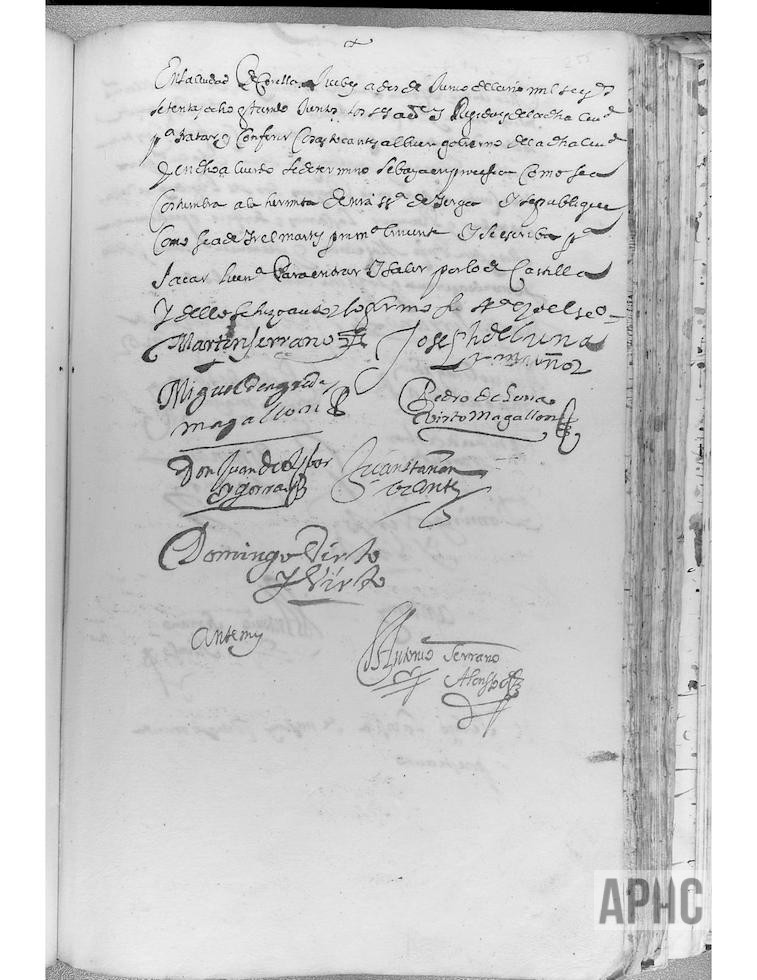 En la ciudad de Corella Juebes a dos de Junio del año mil seys os
setenta y ocho estando Juntos los ss Alde y Regidores de la dha ciud
pa tratar y Conferir Cosas tocantes al buen gobierno de la dha ciud
Y en dho acuerdo se determino se baya en procesion Como se a
Costumbra a la hermita de nra sra de Yerga Y se publique
Como se a de Yr el martes primo biniente Y se escriba pa
sacar licena Para entrar Y salir por lo de Castilla
Y dello se hizo auto
Martin Serrano
Joseph de Luna
y muñoz
Miguel de
magallon
Pedro de Luna
Virto Magallon
Don Juan de
Juan
Domingo Virto
Y Virto
Ante my
Antonio Serrano
Alonso
APHC